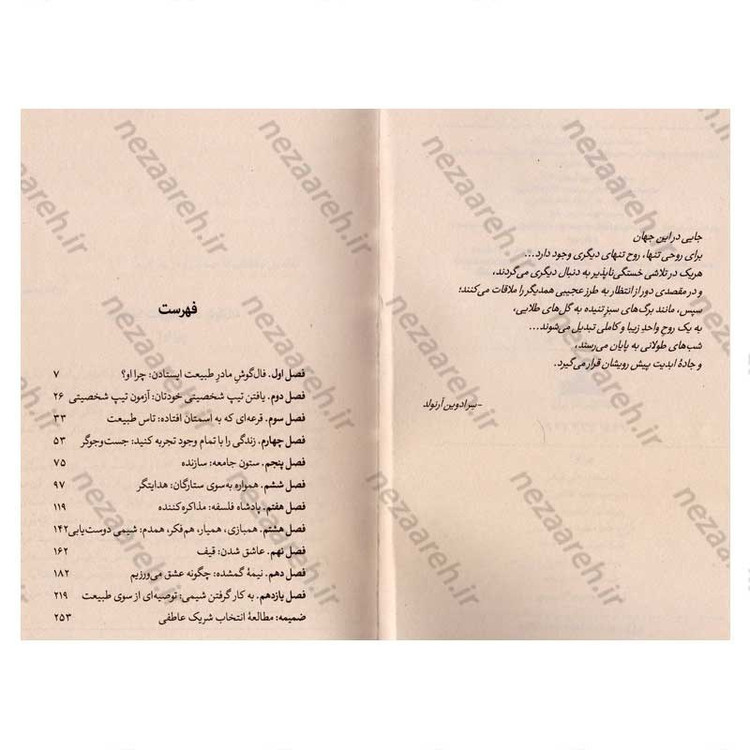 جایی در این جهان
برای روحی تنها، روح تنهای دیگری وجود دارد...
هریک در تلاشی خستگی‌ناپذیر به دنبال دیگری می‌گردند،
و در مقصدی دور از انتظار به طرز عجیبی همدیگر را ملاقات می‌کنند؛
سپس، مانند برگ‌های سبزِ تنیده به گل‌های طلایی،
به یک روحِ واحدِ زیبا و کاملی تبدیل می‌شوند...
شب‌های طولانی به پایان می‌رسند،
و جادهٔ ابدیت پیش رویشان قرار می‌گیرد.
-سِر ادوین آرنولد
فهرست
فصل اول. فال‌گوشِ مادرِ طبیعت ایستادن: چرا او؟ ۷
فصل دوم. یافتن تیپ شخصیتی خودتان: آزمون تیپ شخصیتی ۲۶
فصل سوم. قرعه‌ای که به اسمتان افتاده: تاس طبیعت ۳۳
فصل چهارم. زندگی را با تمام وجود تجربه کنید: جست‌وجوگر ۵۳
فصل پنجم. ستون جامعه: سازنده ۷۵
فصل ششم. همواره به‌سوی ستارگان: هدایتگر ۹۷
فصل هفتم. پادشاه فلسفه: مذاکره‌کننده ۱۱۹
فصل هشتم. همبازی، همیار، هم‌فکر، همدم: شیمی دوست‌یابی ۱۴۲
فصل نهم. عاشق شدن: قیف ۱۶۲
فصل دهم. نیمهٔ گمشده: چگونه عشق می‌ورزیم ۱۸۲
فصل یازدهم. به کار گرفتن شیمی: توصیه‌ای از سوی طبیعت ۲۱۹
ضمیمه: مطالعهٔ انتخاب شریک عاطفی ۲۵۳
nezaareh.ir
nezaareh.ir
nezaareh.ir
nezaareh.ir
nezaareh.ir
nezaareh.ir
nezaareh.ir
nezaareh.ir
nezaareh.ir
nezaareh.ir
nezaareh.ir
nezaareh.ir